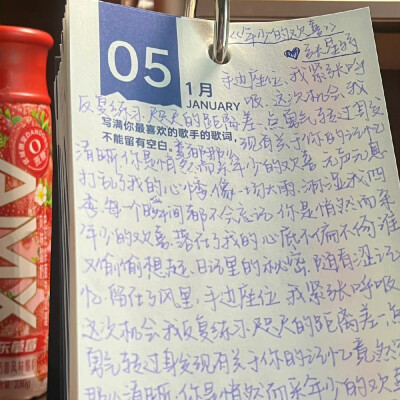 《年少的欢喜》
张星特
05
1月
JANUARY
写满你最喜欢的歌手的歌词,
不能留有空白。
手边座位,我紧张呼
吸,这次机会,我
反复练习,咫尺的距离差一点勇气转过身发
现有关于你的记忆
竟然那么
清晰,你是悄然而来年少的欢喜,无声无息
打乱了我的心情,像一场大雨,淋湿我四
季每一个瞬间都不会忘记,你是悄然而来
年少的欢喜,落在了我的心底不偏不倚,谁
又偷偷想起,日记里的秘密,随着记
忆,留在了风里,手边座位,我紧张呼吸
这次机会我反复练习,咫尺的距离差一点
勇气转过身发现有关于你的记忆竟然
那么清晰,你是悄然而来年少的欢喜
AMX